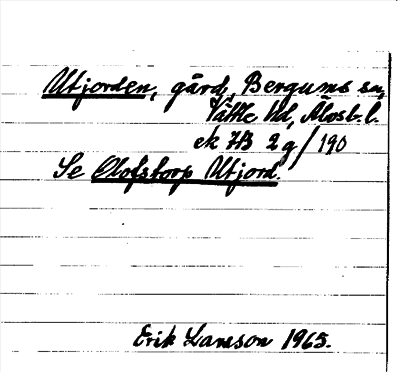 Utjorden, gård, Bergums sn,
Vättle hd, Älvsb. l.
ek 7B 2g/190
Se Olofstorp Utjord.
Erik Larsson 1965.